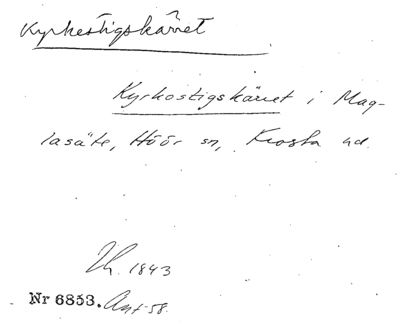 Kyrkestigskärret
Kyrkostigskärret i Mag-
lasäte, Höör sn, Frosta hd.
Uh. 1843
Nr 6853. Ant. 58.